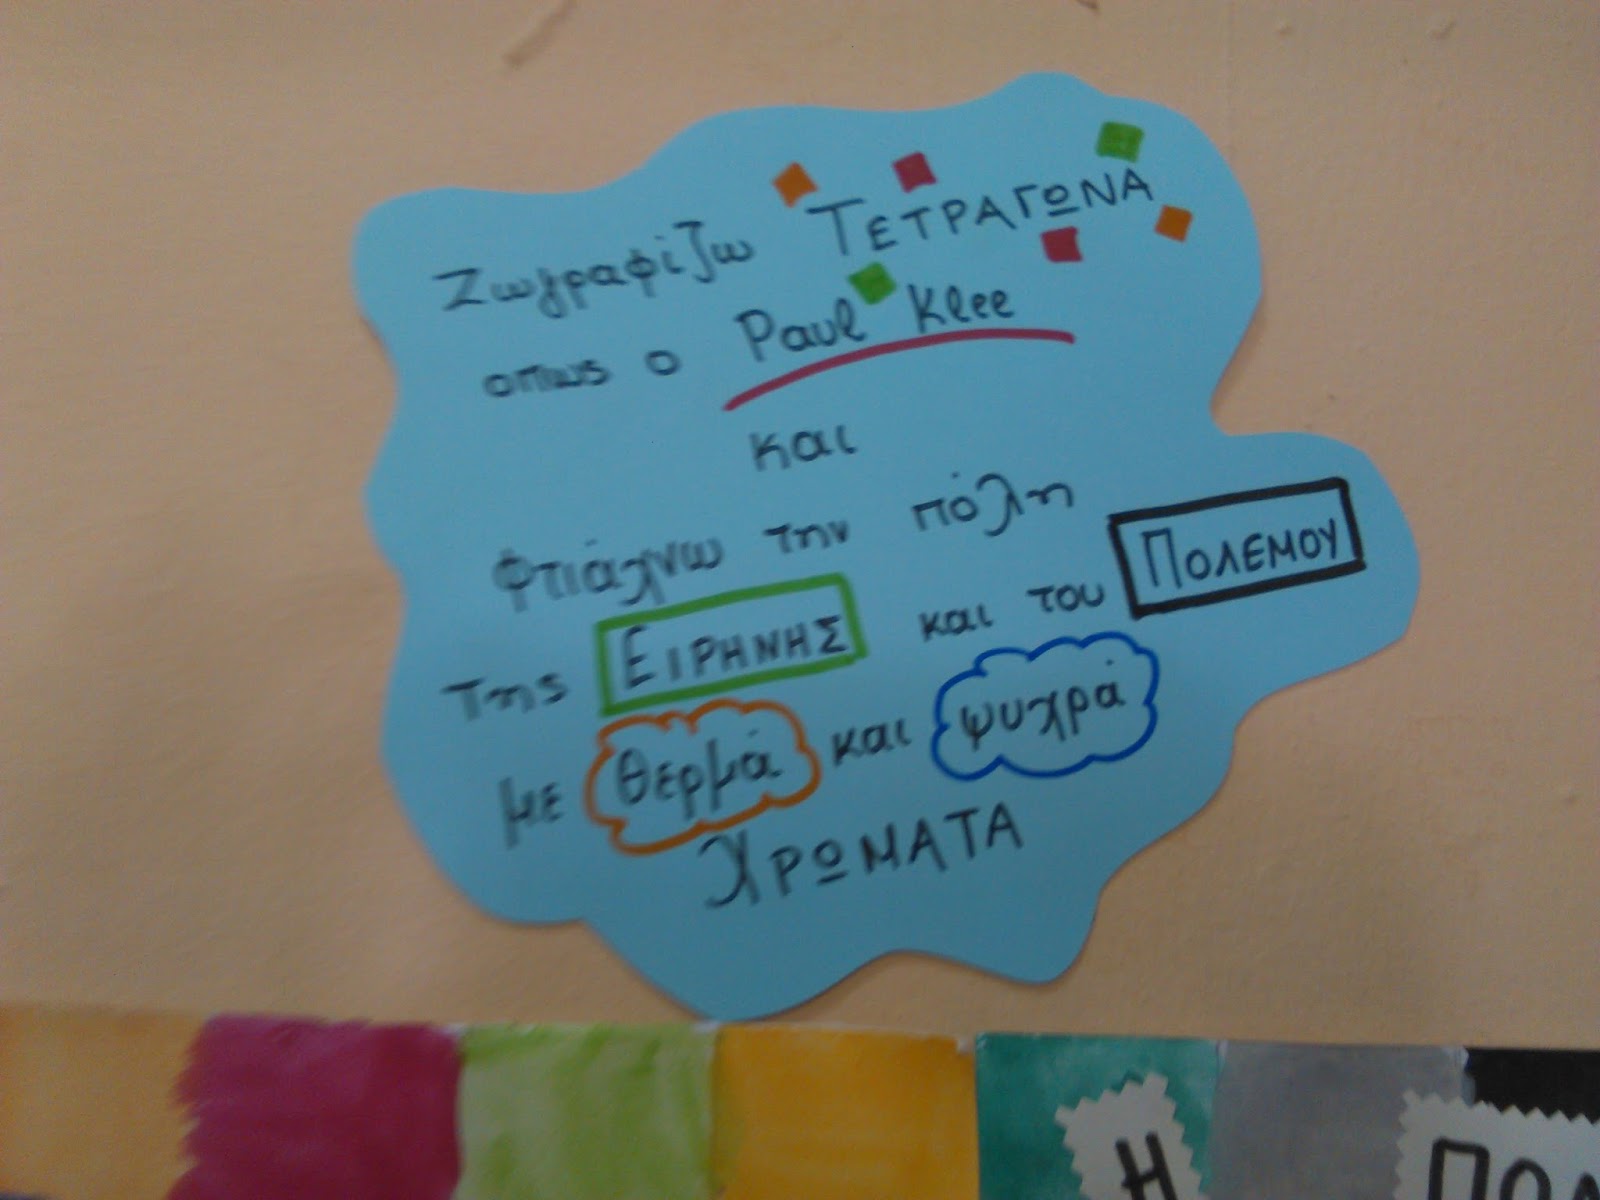 Ζωγραφίζω ΤΕΤΡΑΓΩΝΑ
οπως ο Paul Klee
και
φτιάχνω την πόλη
της ΕΙΡΗΝΗΣ και του ΠΟΛΕΜΟΥ
με θερμά και ψυχρά
ΧΡΩΜΑΤΑ
Η ΠΟΛ